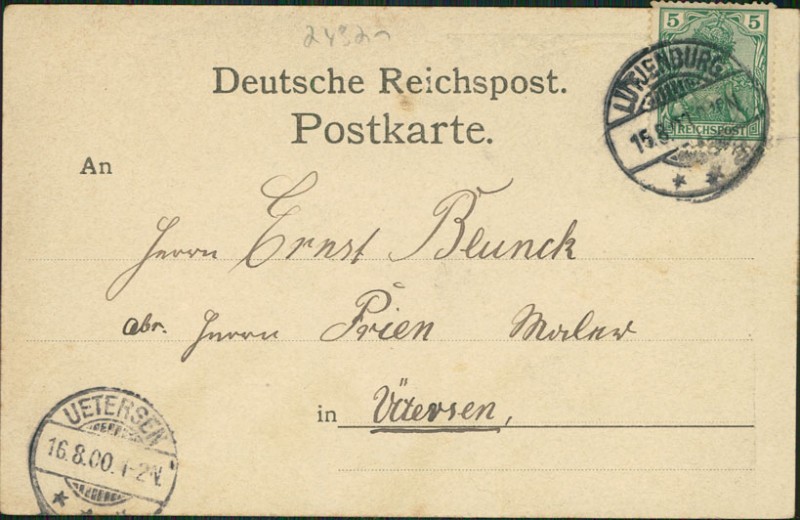 5 5
REICHSPOST
LÜTJENBURG
15.8.
Deutsche Reichspost.
Postkarte.
An
Herrn Ernst Beunck
abr. Herrn Prien Maler
in Ütersen,
UETERSEN
16.8.00. 1-2 N.